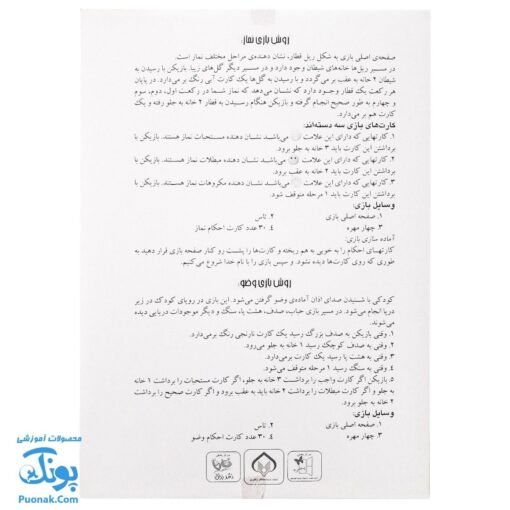 روش بازی نماز:
صفحه‌ی اصلی بازی به شکل ریل قطار، نشان دهنده‌ی مراحل مختلف نماز است.
در مسیر ریل‌ها خانه‌های شیطان وجود دارد و در مسیر دیگر گل‌های زیبا. بازیکن با رسیدن به
شیطان ۲ خانه به عقب بر می‌گردد و با رسیدن به گل‌ها یک کارت آبی رنگ بر می‌دارد. در پایان
هر رکعت یک قطار وجود دارد که نشان می‌دهد که نماز شما در رکعت اول، دوم، سوم
و چهارم به طور صحیح انجام گرفته و بازیکن هنگام رسیدن به قطار ۲ خانه به جلو رفته و یک
کارت هم بر می‌دارد.
کارت‌های بازی سه دسته‌اند:
۱. کارتهایی که دارای این علامت می‌باشد نشان دهنده مستحبات نماز هستند. بازیکن با
برداشتن این کارت باید ۳ خانه به جلو برود.
۲. کارتهایی که دارای این علامت می‌باشد نشان دهنده مبطلات نماز هستند. بازیکن با
برداشتن این کارت باید ۲ خانه به عقب برود.
۳. کارتهایی که دارای این علامت می‌باشد نشان دهنده مکروهات نماز هستند. بازیکن با
برداشتن این کارت باید ۱ مرحله متوقف شود.
وسایل بازی:
۱. صفحه اصلی بازی ۲. تاس
۳. چهار مهره ۴. ۳۰ عدد کارت احکام نماز
آماده سازی بازی:
کارتهای احکام را به خوبی به هم ریخته و کارت‌ها را پشت رو کنار صفحه بازی قرار دهید به
طوری که روی کارت‌ها دیده نشود. و سپس بازی را با نام خدا شروع می‌کنیم.
روش بازی وضو:
کودکی با شنیدن صدای اذان آماده‌ی وضو گرفتن می‌شود. این بازی در رویای کودک در زیر
دریا انجام می‌شود. در مسیر بازی حباب، صدف، هشت پا، سنگ و دیگر موجودات دریایی دیده
می‌شوند.
۱. وقتی بازیکن به صدف بزرگ رسید یک کارت نارنجی رنگ برمی‌دارد.
۲. وقتی به صدف کوچک رسید ۱ خانه به جلو می‌رود.
۳. وقتی به هشت پا رسید یک کارت برمی‌دارد.
۴. وقتی به سنگ رسید ۱ مرحله متوقف می‌شود.
۵. بازیکن اگر کارت واجب را برداشت ۳ خانه به جلو، اگر کارت مستحبات را برداشت ۱ خانه
به جلو و اگر کارت مبطلات را برداشت ۲ خانه باید به عقب برود و اگر کارت صحیح را برداشت
۲ خانه به جلو برود.
وسایل بازی:
۱. صفحه اصلی بازی ۲. تاس
۳. چهار مهره ۴. ۳۰ عدد کارت احکام وضو
محصولات آموزشی
پونک
Puonak.Com